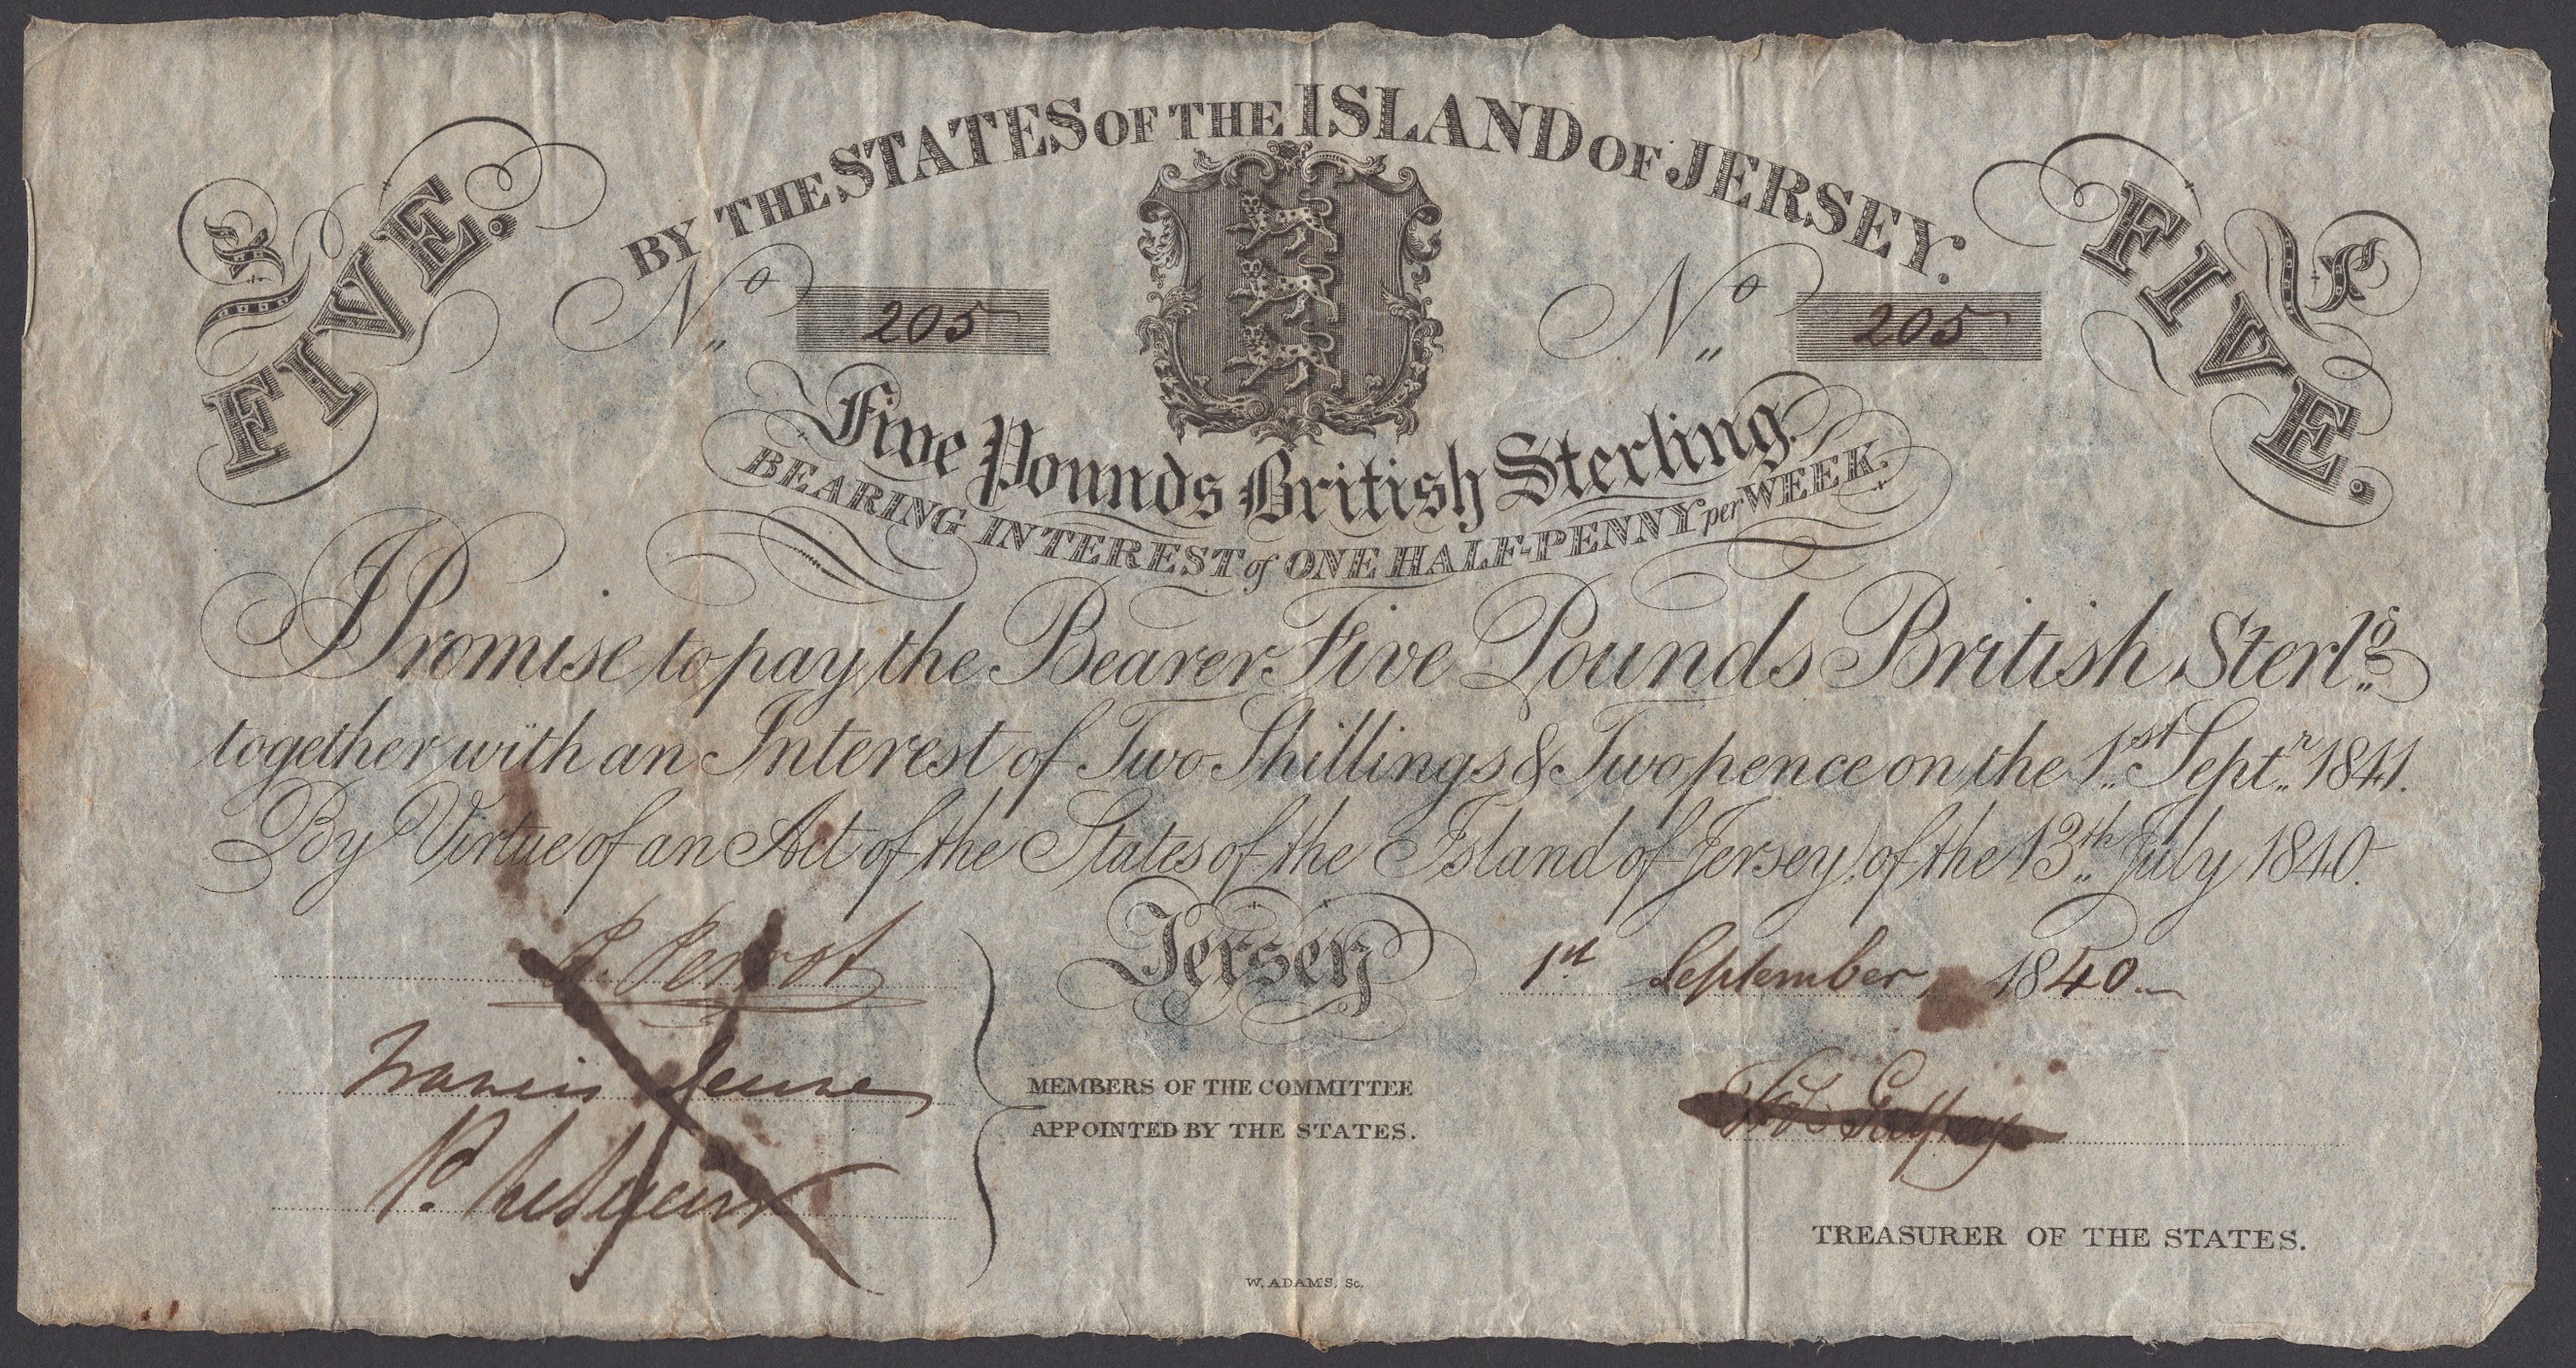 BY THE STATES OF THE ISLAND OF JERSEY.
£ FIVE.
£ FIVE.
No 205
No 205
Five Pounds British Sterling.
BEARING INTEREST of ONE HALF-PENNY per WEEK.
I Promise to pay the Bearer Five Pounds British Sterlg
together with an Interest of Two Shillings & Twopence on the 1st Septr 1841.
By Virtue of an Act of the States of the Island of Jersey, of the 13th July 1840.
Jersey 1st September, 1840
Perrot
Francis Jeune
P.
MEMBERS OF THE COMMITTEE
APPOINTED BY THE STATES.
TREASURER OF THE STATES.
W. ADAMS, Sc.